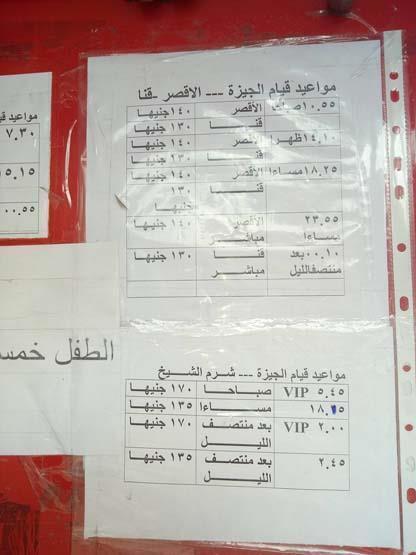 مواعيد قيام الجيزة --- الاقصر -قنا
١٠.٥٥ الأقصر ١٤٠جنيها
قنا ١٣٠ جنيها
١٤.١٠ظهرا ١٤٠ جنيها
قنا ١٣٠ جنيها
١٨.٢٥مساءا الأقصر ١٤٠ جنيها
قنا ١٣٠
جنيها
٢٣.٥٥ الأقصر ١٤٠ جنيها
مساءا مباشر
٠٠.١٠بعد قنا ١٣٠ جنيها
منتصفالليل مباشر
مواعيد قيام
٧.٣٠
١٥.١٥
٠٠.٥٥
الطفل
مواعيد قيام الجيزة --- شرم الشيخ
٥.٤٥ VIP صباحا ١٧٠ جنيها
١٨.١٥ مساءا ١٣٥ جنيها
٢.٠٠ VIP بعد منتصف ١٧٠ جنيها
الليل
٢.٤٥ بعد منتصف ١٣٥ جنيها
الليل